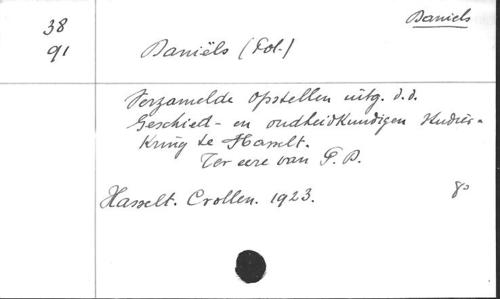 Daniels
38
91
Daniëls (Pol.)
Verzamelde opstellen uitg. d.d.
Geschied- en oudheidkundigen studie-
Kring te Hasselt.
Ter eere van P. D.
Hasselt. Crollen. 1923.
8°